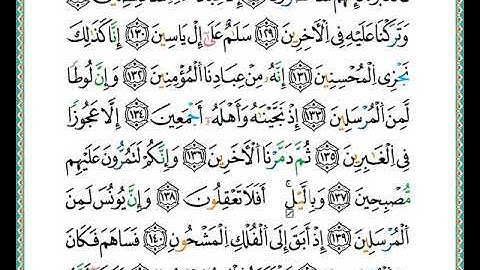 وَتَرَكْنَا عَلَيْهِ فِي الْآخِرِينَ ١٢٩ سَلَامٌ عَلَىٰ إِلْ يَاسِينَ ١٣٠ إِنَّا كَذَٰلِكَ
نَجْزِي الْمُحْسِنِينَ ١٣١ إِنَّهُ مِنْ عِبَادِنَا الْمُؤْمِنِينَ ١٣٢ وَإِنَّ لُوطًا
لَّمِنَ الْمُرْسَلِينَ ١٣٣ إِذْ نَجَّيْنَاهُ وَأَهْلَهُ أَجْمَعِينَ ١٣٤ إِلَّا عَجُوزًا
فِي الْغَابِرِينَ ١٣٥ ثُمَّ دَمَّرْنَا الْآخَرِينَ ١٣٦ وَإِنَّكُمْ لَتَمُرُّونَ عَلَيْهِم
مُّصْبِحِينَ ١٣٧ وَبِاللَّيْلِ ۗ أَفَلَا تَعْقِلُونَ ١٣٨ وَإِنَّ يُونُسَ لَمِنَ
الْمُرْسَلِينَ ١٣٩ إِذْ أَبَقَ إِلَى الْفُلْكِ الْمَشْحُونِ ١٤٠ فَسَاهَمَ فَكَانَ